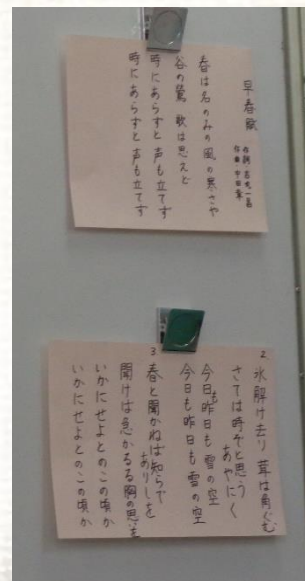 早春賦
作詞 吉丸一昌
作曲 中田章
春は名のみの 風の寒さや
谷の鶯 歌は思えど
時にあらずと 声も立てず
時にあらずと 声も立てず
2 氷解け去り 葦は角ぐむ
さては時ぞと 思う あやにく
今日も昨日も 雪の空
今日も昨日も 雪の空
3 春と聞かねば 知らでありしを
聞けば急かるる 胸の思を
いかにせよとの この頃か
いかにせよとの この頃か